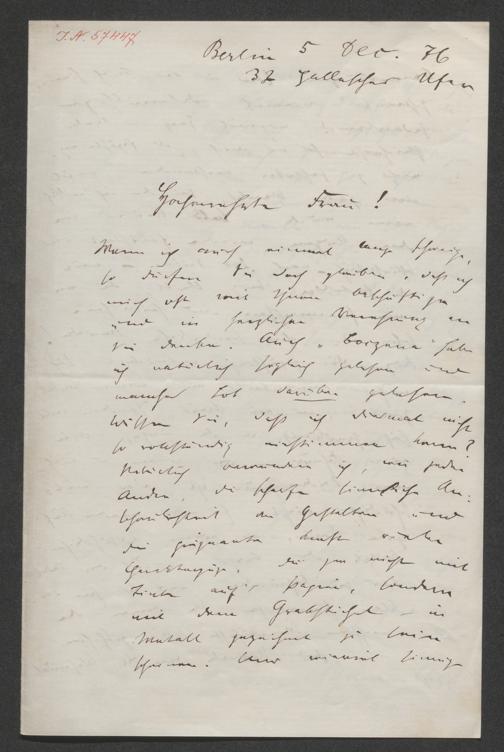 I.N. 57447
Berlin 5 Dec. 76
32 Hallesches Ufer
Hochverehrte Frau!
Wenn ich auch einmal lange schweige,
so dürfen Sie doch glauben, daß ich
mich oft mit Ihnen beschäftige
und in herzlicher Verehrung an
Sie denke. Auch "Boržena" habe
ich natürlich sogleich gelesen und
manches Lob darüber gelesen.
Wissen Sie, daß ich diesmal nicht
so vollständig einstimmen kann?
Natürlich bewundere ich, wie jeder
Andre, die scharfe sinnliche An-
schaulichkeit der Gestalten und
die prägnante Kraft vieler
die gar nicht mit
Tinte auf Papier, sondern
mit dem Grabstichel in
Metall gezeichnet zu sein
scheinen. Aber wieviel